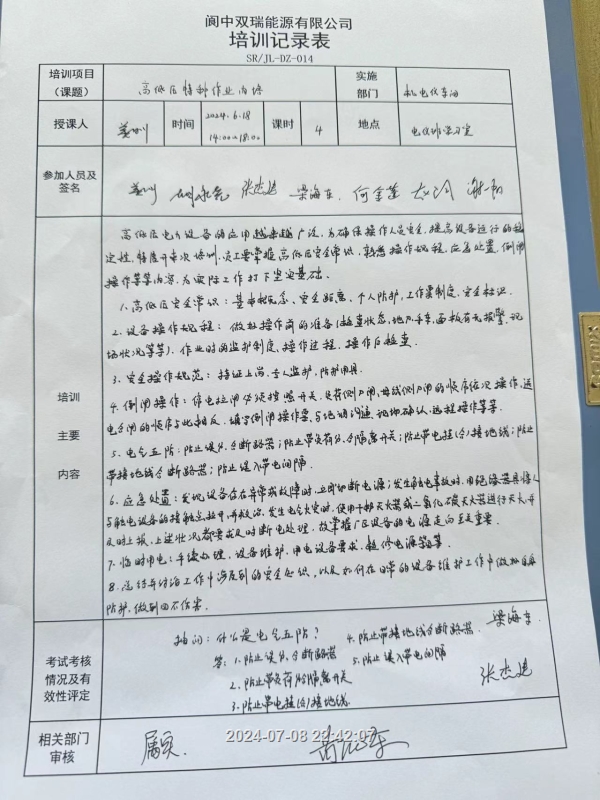 阆中双瑞能源有限公司
培训记录表
SR/JL-DZ-014
培训项目（课题） 高低压特种作业内培 实施部门 机电仪车间
授课人 姜训 时间 2024.6.18 14:00~18:00 课时 4 地点 电仪班学习室
参加人员及签名 姜训 张杰 梁海东 何金莲
高低压电力设备的应用越来越广泛,为确保操作人员安全,提高设备运行的稳
定性,特展开本次培训,员工要掌握高低压安全常识,熟悉操作规程,应急处置,倒闸
操作等等内容,为实际工作打下坚实基础.
1.高低压安全常识:基本概念、安全距离、个人防护,工作票制度,安全标识.
2.设备操作规程:做好操作前的准备(检查状态,地刀,手车,面板有无报警,现
场状况等等).作业时的监护制度,操作过程,操作后检查.
3.安全操作规范:持证上岗,专人监护,防护用具.
培训主要内容
4.倒闸操作:停电拉闸必须按照开关,负荷侧刀闸,母线侧刀闸的顺序依次操作,送
电合闸的顺序与此相反,填写倒闸操作票,与地调沟通,现场确认,远程操作等等.
5.电气五防:防止误分,合断路器;防止带负荷分,合隔离开关;防止带电挂(合)接地线;防止
带接地线合断路器;防止误入带电间隔.
6.应急处置:发现设备存在异常或故障时,立即切断电源;发生触电事故时,用绝缘器具将人
与触电设备的接触点拉开,并救治,发生电气火灾时,使用干粉灭火器或二氧化碳灭火器进行灭火,并
及时上报,上述状况都要求及时断电处理,故掌握厂区设备的电源走向至关重要.
7.临时用电:手续办理,设备维护,用电设备要求,检修电源箱等.
8.总结并讨论工作中涉及到的安全知识,以及如何在日常的设备维护工作中做好自身
防护,做到四不伤害.
考试考核情况及有效性评定
抽问:什么是电气五防? 4.防止带接地线合断路器 梁海东
答:1.防止误分,合断路器 5.防止误入带电间隔
2.防止带负荷分,合隔离开关 张杰
3.防止带电挂(合)接地线
相关部门审核 属实.
2024-07-08 22:42:07